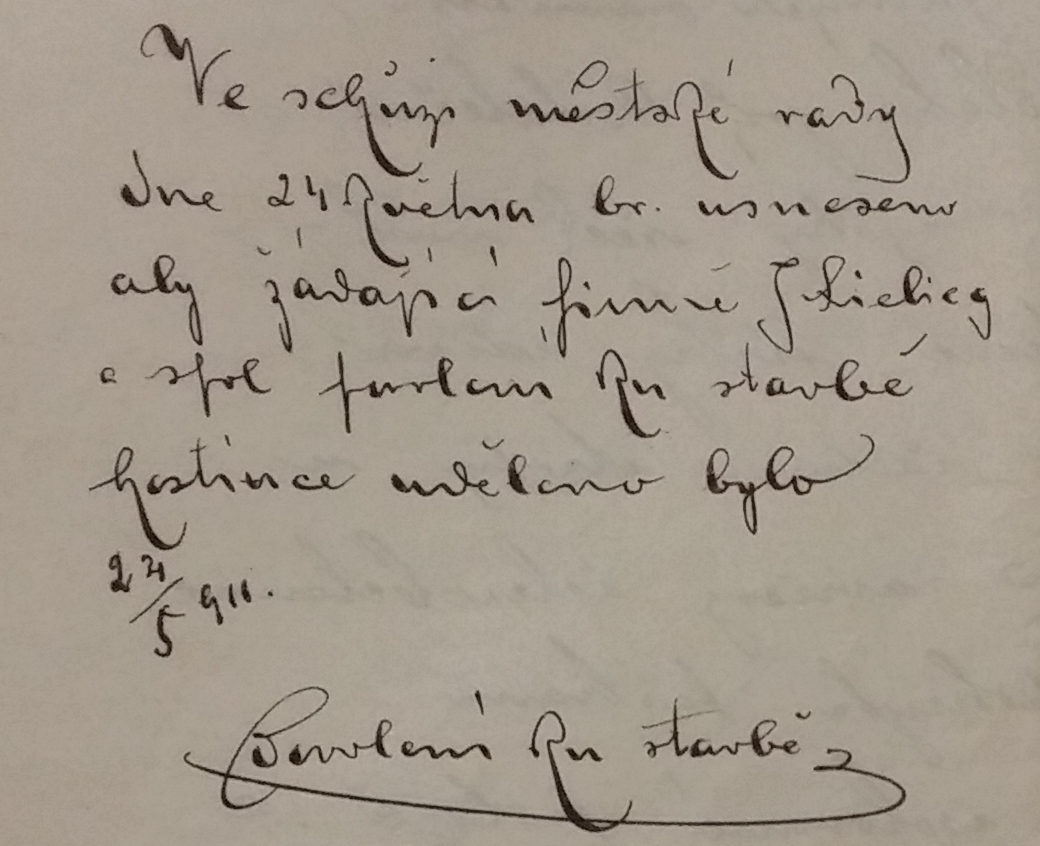 Ve schůzi městské rady
dne 24 května br. usneseno
aby žádající firmě J Liebieg
a spol povolení ku stavbě
hostince uděleno bylo
24/5 911.
Povolení ku stavbě